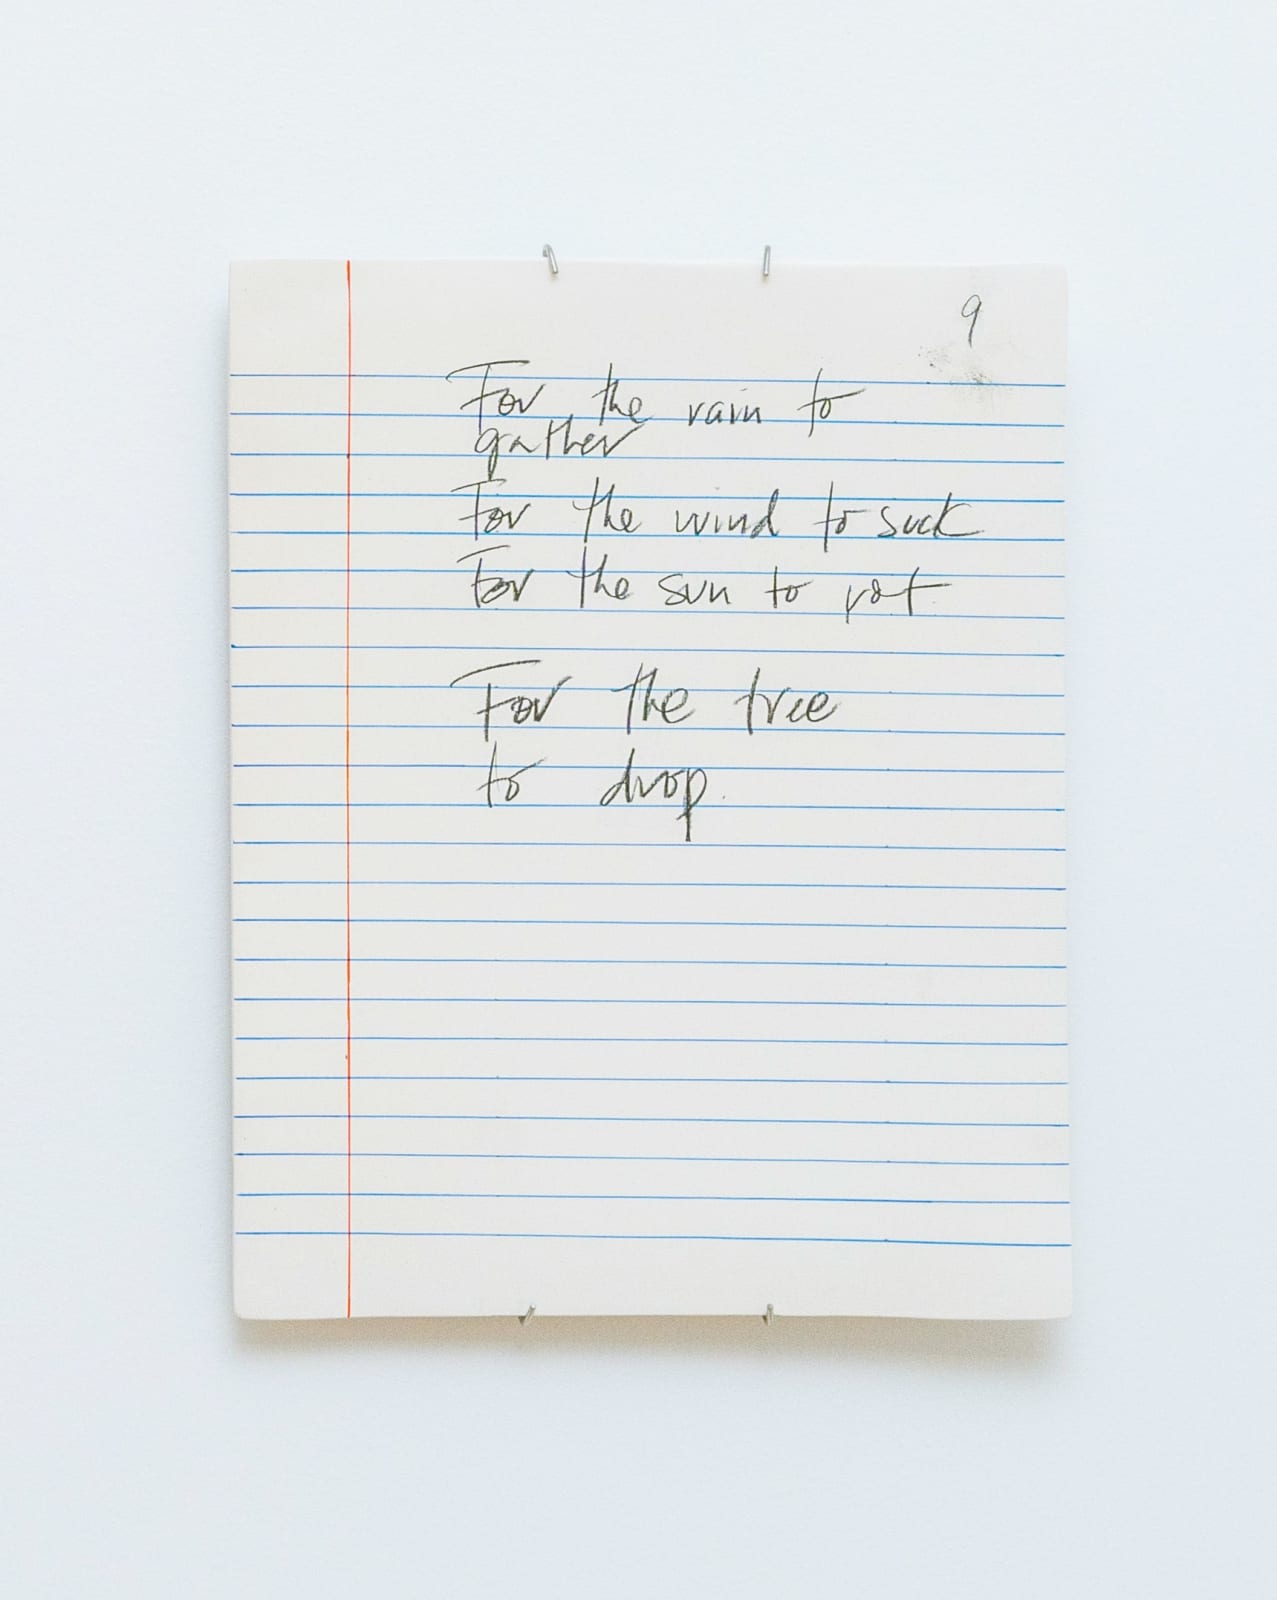 9
For the rain to
gather
For the wind to suck
For the sun to rot
For the tree
to drop.